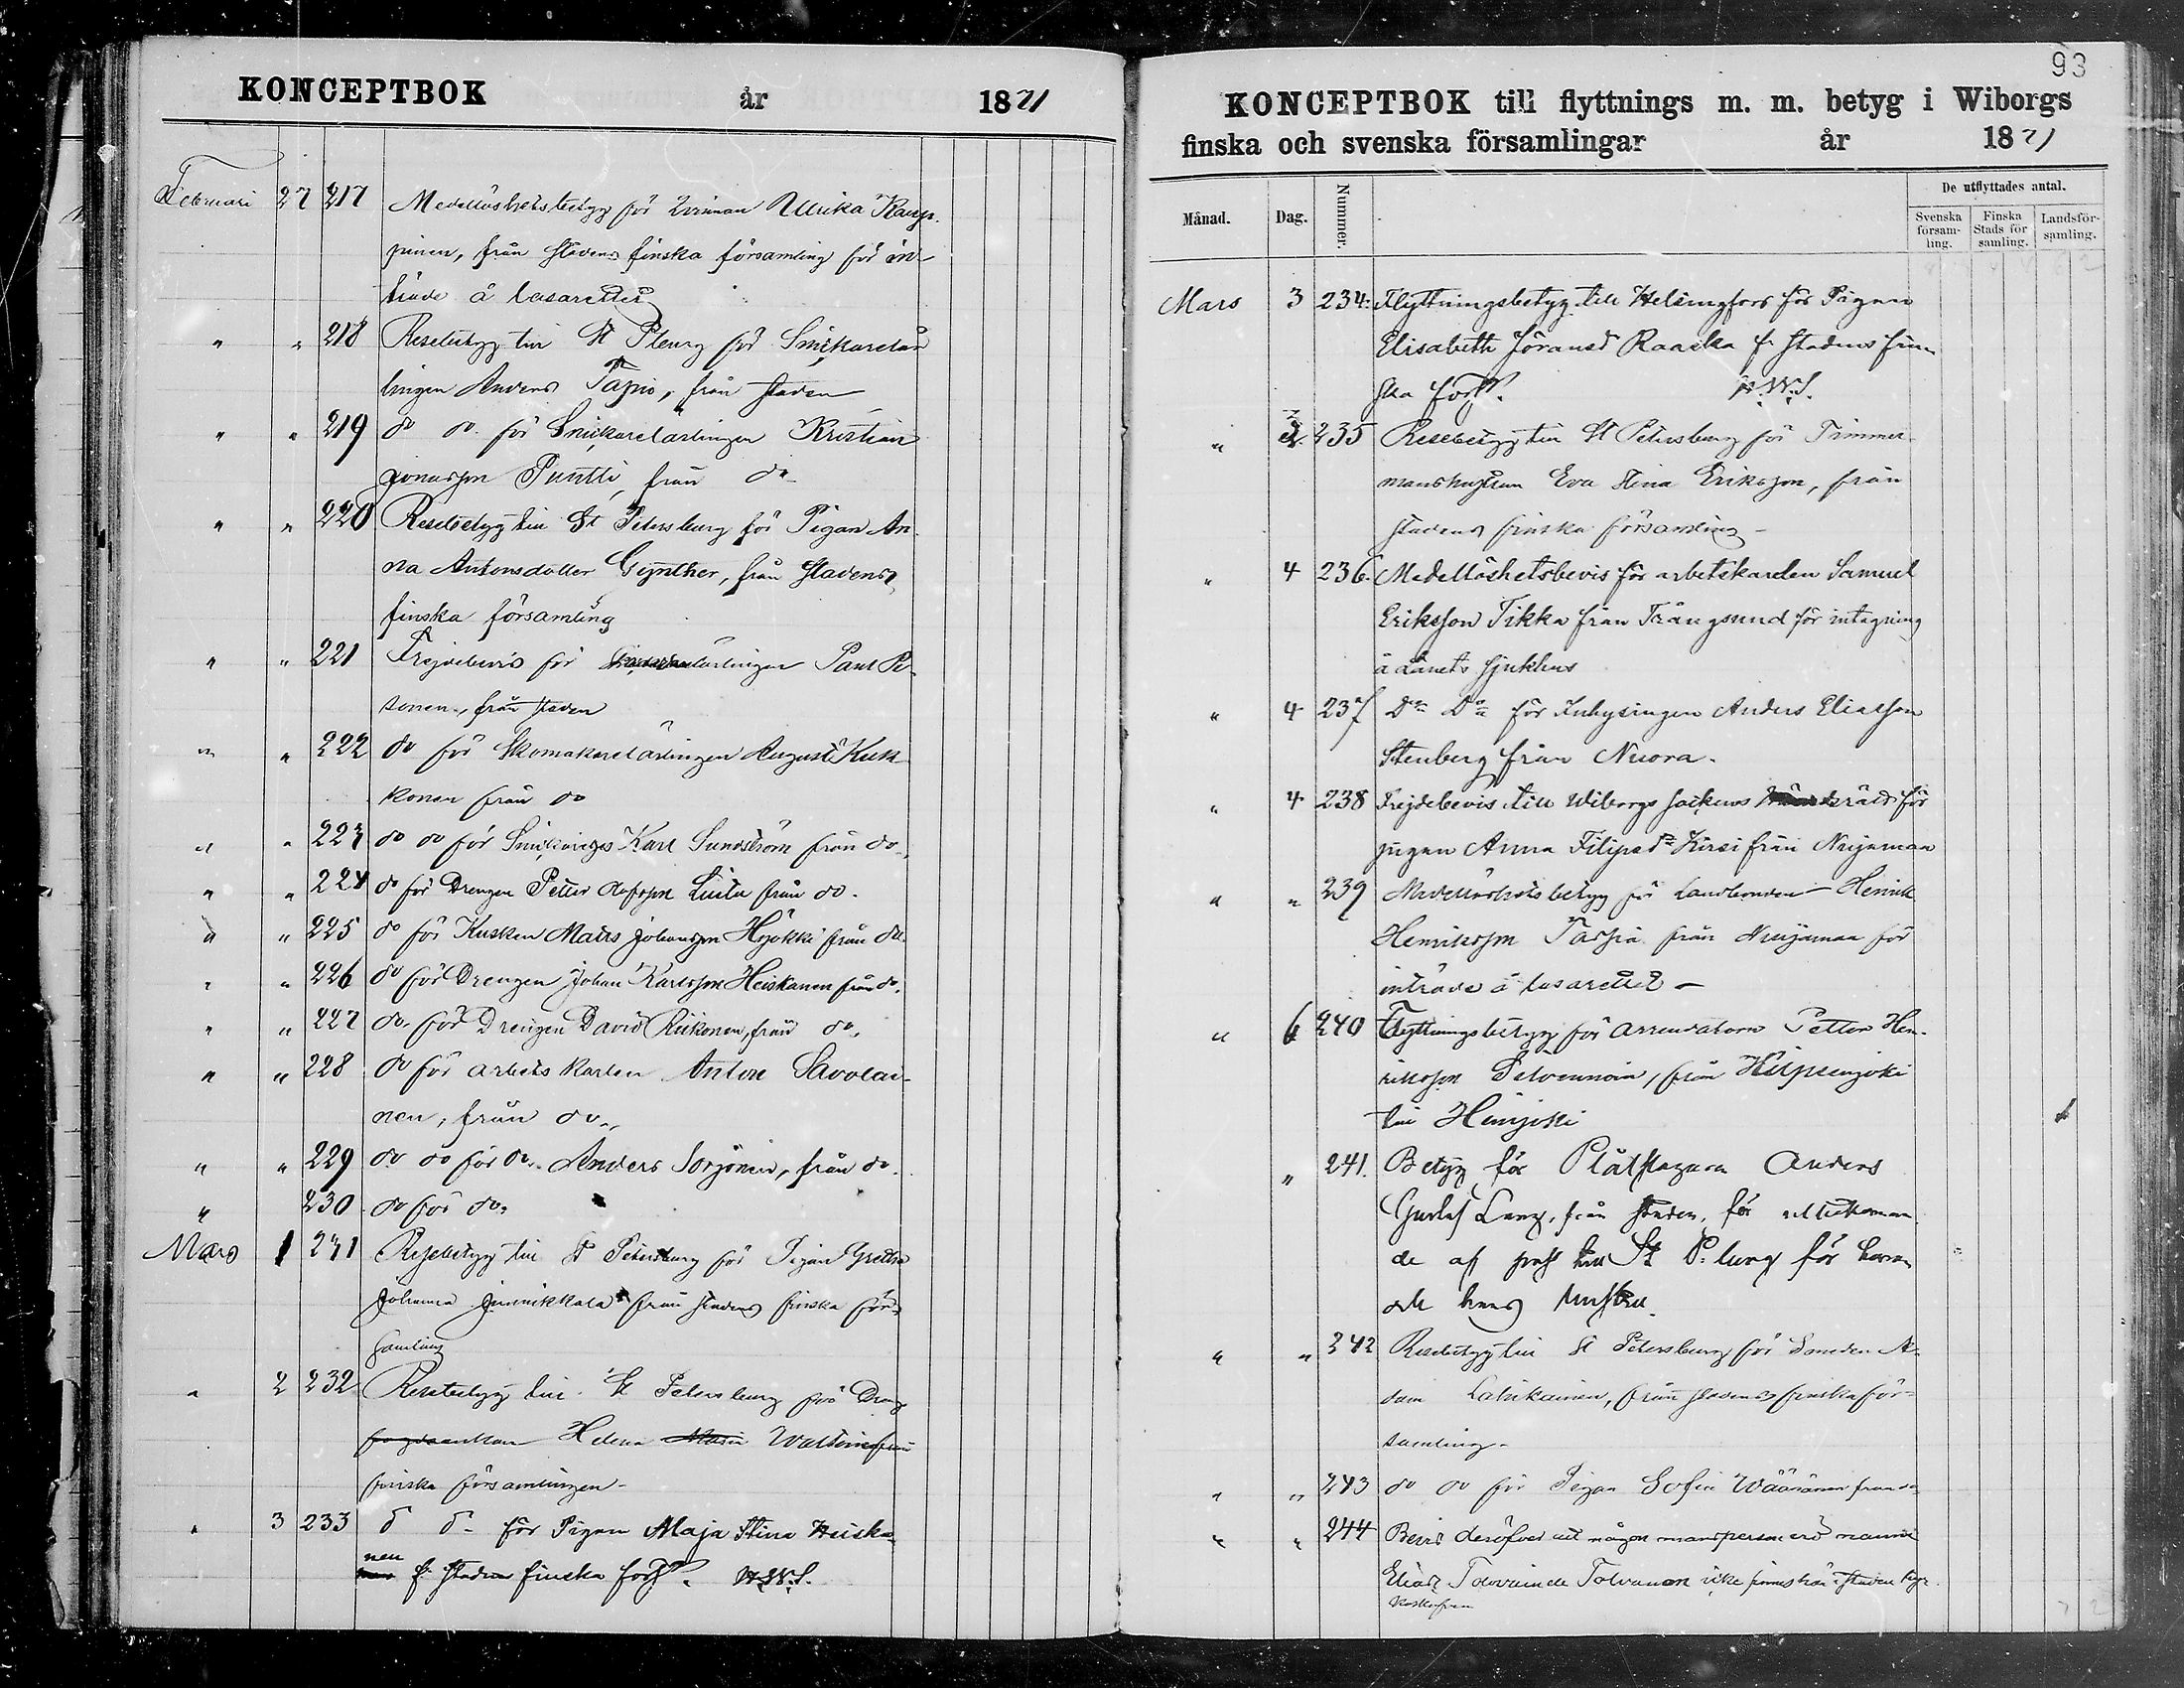 KONCEPTBOK år 1871
Februari 27 217 Medellöshetsbetyg för Qvinnan Ulrika Kaup-
pinen, från stadens finska församling för in-
träde å lasarettet
" " 218 Resebetyg till St Pburg för Snickarelär
lingen Anders Tapio, från staden
" " 219 do do för Snickarelärlingen Kristian
Jonasson Puntti, från do
" " 220 Resebetyg till St Petersburg för Pigan An-
na Antonsdotter Gynther, från stadens
finska församling
" " 221 Frejdebevis för lärlingen Paul Pe-
sonen, från staden
" " 222 do för Skomakarelärlingen August Kuk-
konen från do
" " 223 do do för Karl Sundström från do
" " 224 do för Drengen Petter Olofsson Liuta från do.
" " 225 do för Kusken Matts Johansson Hyökki från do
" " 226 do för Drengen Johan Karlsson Heiskanen från do.
" " 227 do för Drengen David Riikonen, från do.
" " 228 do för arbetskarlen Anton Savolai-
nen, från do.,
" " 229 do do för do. Anders Sorjonen, från do.
" 230 do för do.
Mars 1 231 Resebetyg till St Petersburg för Pigan Gretha
Johanna Jinnikkala från stadens finska för-
samling
" 2 232 Resebetyg till St Petersburg för Dreng
Helena Maria från
finska församlingen -
" 3 233 d d för Pigan Maja Stina Heiska-
nen f. stadens finska förs.
93
KONCEPTBOK till flyttnings m. m. betyg i Wiborgs
finska och svenska församlingar år 1871
Månad. Dag. Nummer. De utflyttades antal.
Svenska församling. Finska Stads församling. Landsförsamling.
Mars 3 234. Flyttningsbetyg till Helsingfors för Pigan
Elisabeth Göransd Raaska f. stadens fin
ska förs.
" 3. 235 Resebetyg till St Petersburg för Timmer-
manshustrun Eva Stina Eriksson, från
stadens finska församling -
" 4 236. Medellöshetsbevis för arbetskarlen Samuel
Eriksson Tikka från Trångsund för intagning
å Länets sjukhus
" 4 237 Do Do för Inhysingen Anders Eliasson
Stenberg från Nuora.
" 4 238 Frejdebevis till Wiborgs sockens för
pigan Anna Filipsdr Kirsi från Nuijamaa
" " 239 Medellöshetsbetyg för Landbonden Henrik
Henriksson Tarpia från Nuijamaa för
inträde å lasarettet -
" 6 240 Flyttningsbetyg för arrendatorn Petter Hen-
riksson från
till Heinjoki 1
" 241. Betyg för Plåtslagaren Anders
Gustaf Lang, från staden, för utbekomman
de af pass till St P.burg för honom
och hans hustru.
" " 242 Resebetyg till St Petersburg för Smeden A-
dam Latukainen, från stadens finska för-
samling -
" " 243 do do för Pigan Sofia Wäänänen från do
" " 244 Bevis deröfver att någon mansperson vid namn
Elias Tolvainen Tolvanen icke finnes här i staden